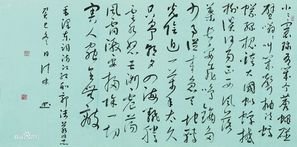 小小寰球有几个苍蝇碰
壁嗡嗡叫几声凄厉几声抽泣蚂
蚁缘槐夸大国蚍蜉撼树
谈何易正西风落
叶下长安飞鸣镝多少
事从来急天地转
光阴迫一万年太久
只争朝夕四海翻腾
云水怒五洲震荡
风雷激要扫除一切
害人虫全无敌
毛泽东词满江红和郭沫若同志